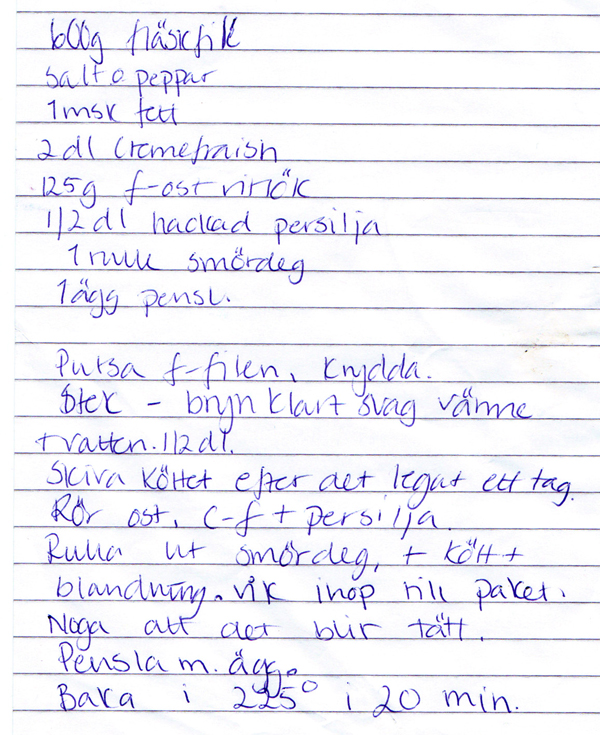 600g fläskfilé
salt o peppar
1 msk fett
2 dl Cremefraish
125g f-ost vitlök
1/2 dl hackad persilja
1 rulle smördeg
1 ägg pensl.
Putsa f-filen, krydda.
Stek - bryn klart svag värme
+ vatten. 1/2 dl.
Skiva köttet efter det legat ett tag.
Rör ost, c-f + persilja.
Rulla ut smördeg, + kött +
blandning. vik ihop till paket.
Noga att det blir tätt.
Pensla m. ägg.
Baka i 225° i 20 min.